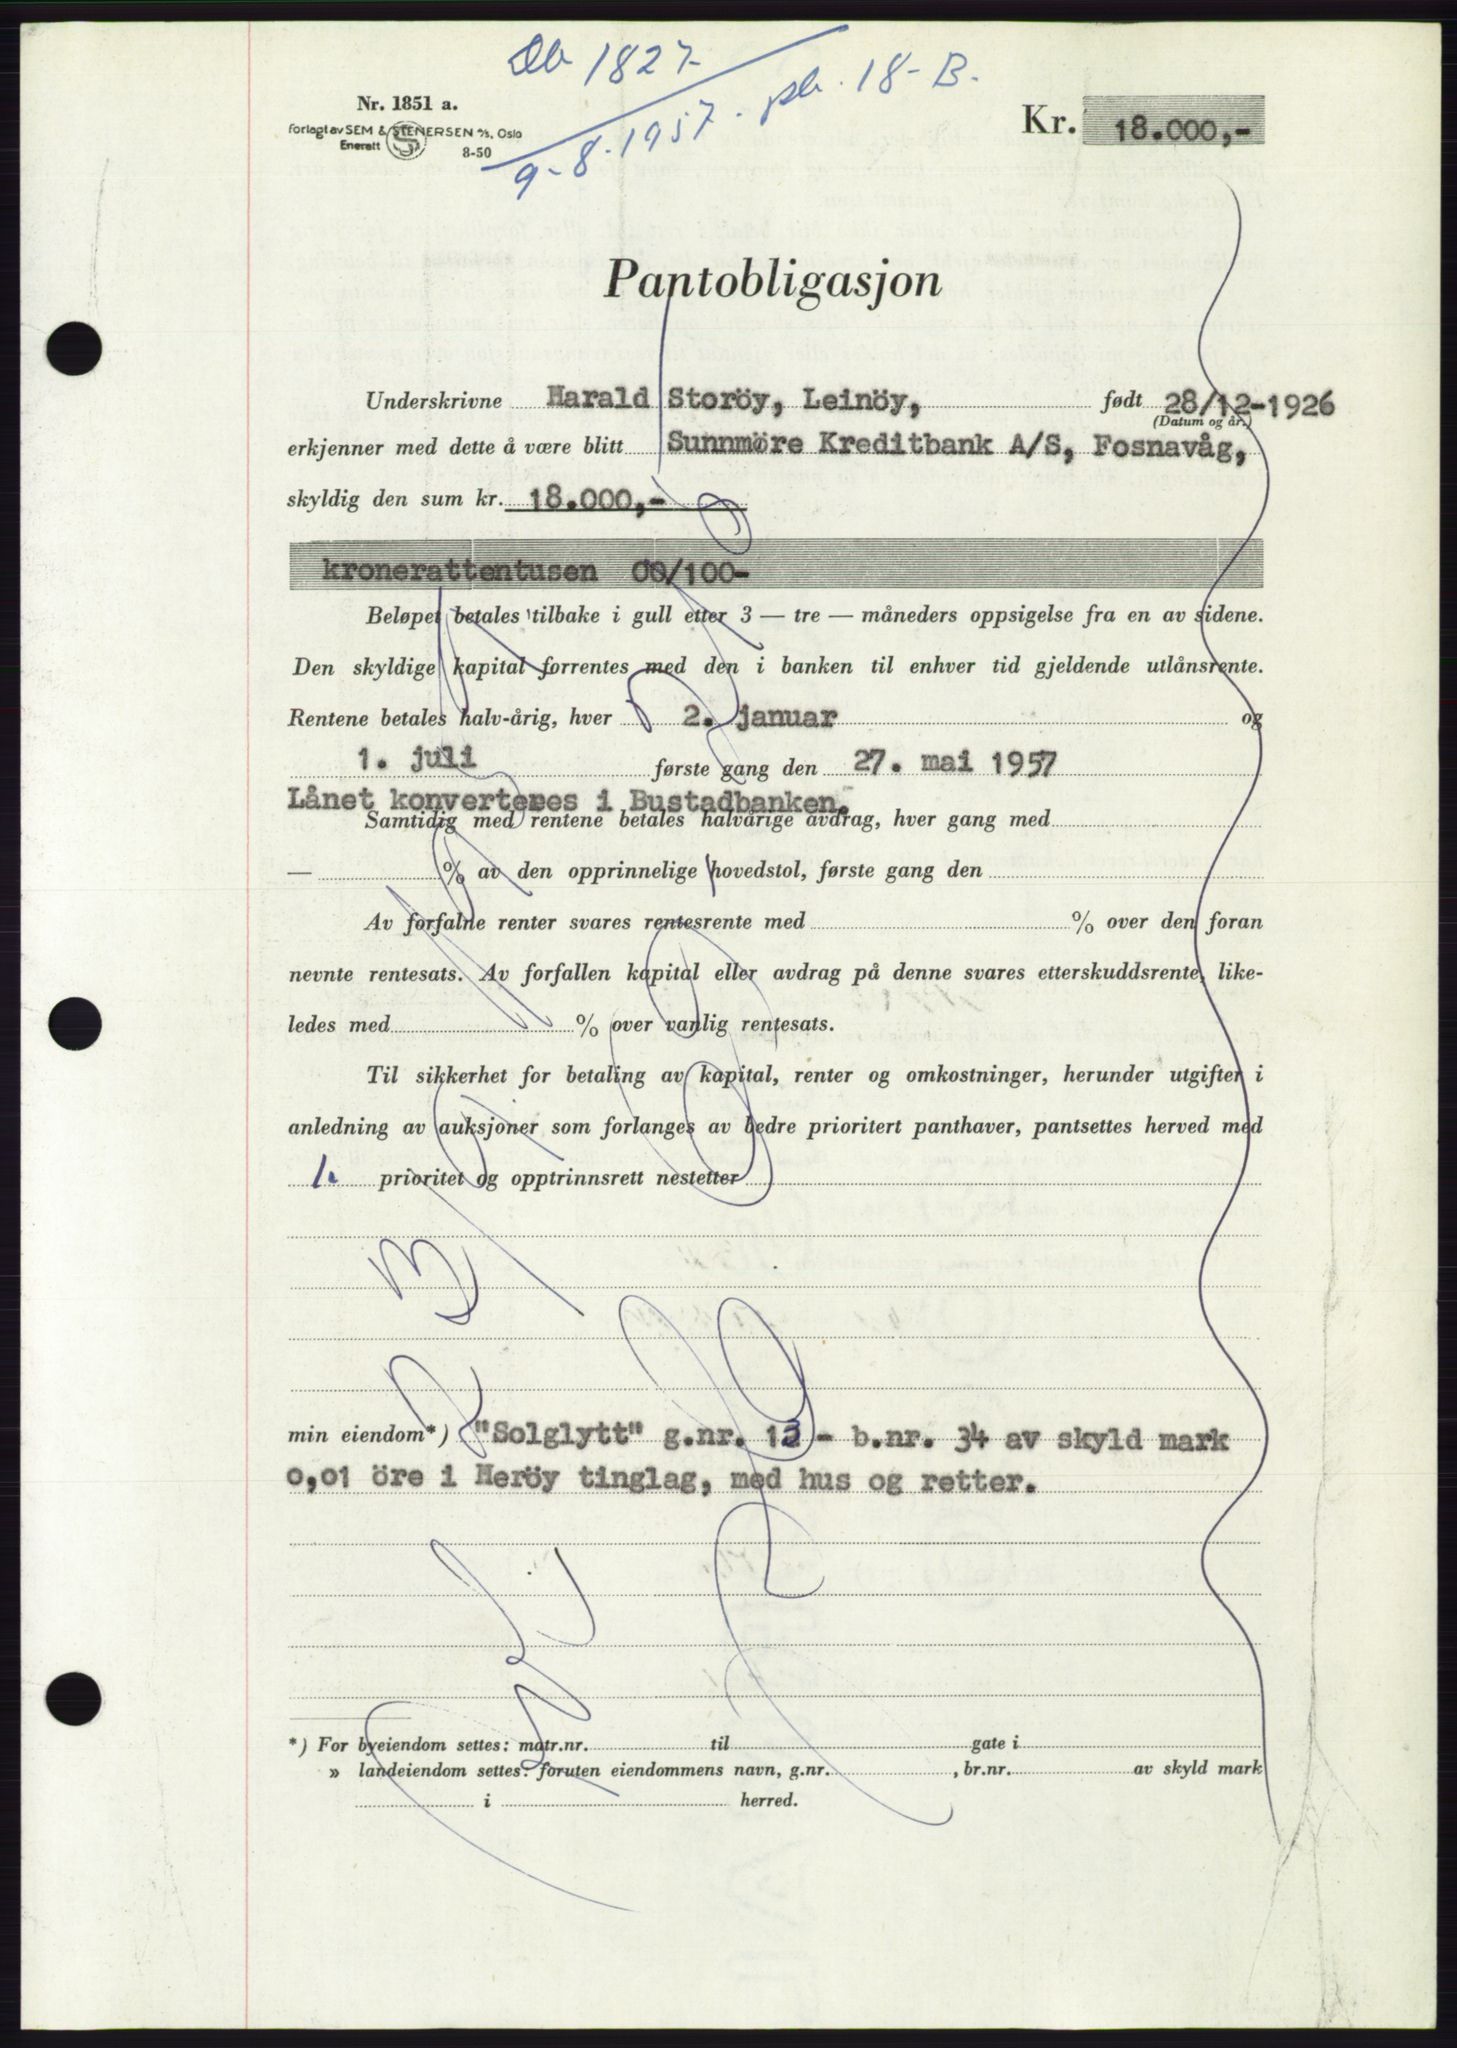 Db 1827-
9-8-1957. pb. 18-B.
Nr. 1851 a.
Forlagt av SEM & STENERSEN A/S, Oslo
Enerett
8-50
Kr. 18.000,-
Pantobligasjon
Underskrivne Harald Storöy, Leinöy, født 28/12-1926
(Datum og år.)
erkjenner med dette å være blitt Sunnmöre Kreditbank A/S, Fosnavåg,
skyldig den sum kr. 18.000,-
kronerattentusen 00/100-
Beløpet betales tilbake i gull etter 3 — tre — måneders oppsigelse fra en av sidene.
Den skyldige kapital forrentes med den i banken til enhver tid gjeldende utlånsrente.
Rentene betales halv-årig, hver 2. januar og
1. juli første gang den 27. mai 1957
Lånet konverteres i Bustadbanken.
Samtidig med rentene betales halvårige avdrag, hver gang med
— % av den opprinnelige hovedstol, første gang den
Av forfalne renter svares rentesrente med % over den foran
nevnte rentesats. Av forfallen kapital eller avdrag på denne svares etterskuddsrente, like-
ledes med % over vanlig rentesats.
Til sikkerhet for betaling av kapital, renter og omkostninger, herunder utgifter i
anledning av auksjoner som forlanges av bedre prioritert panthaver, pantsettes herved med
1. prioritet og opptrinnsrett nestetter
min eiendom*) "Solglytt" g.nr. 13 - b.nr. 34 av skyld mark
0,01 öre i Heröy tinglag, med hus og retter.
*) For byeiendom settes: matr.nr. til gate i
» landeiendom settes: foruten eiendommens navn, g.nr. , br.nr. av skyld mark
i herred.